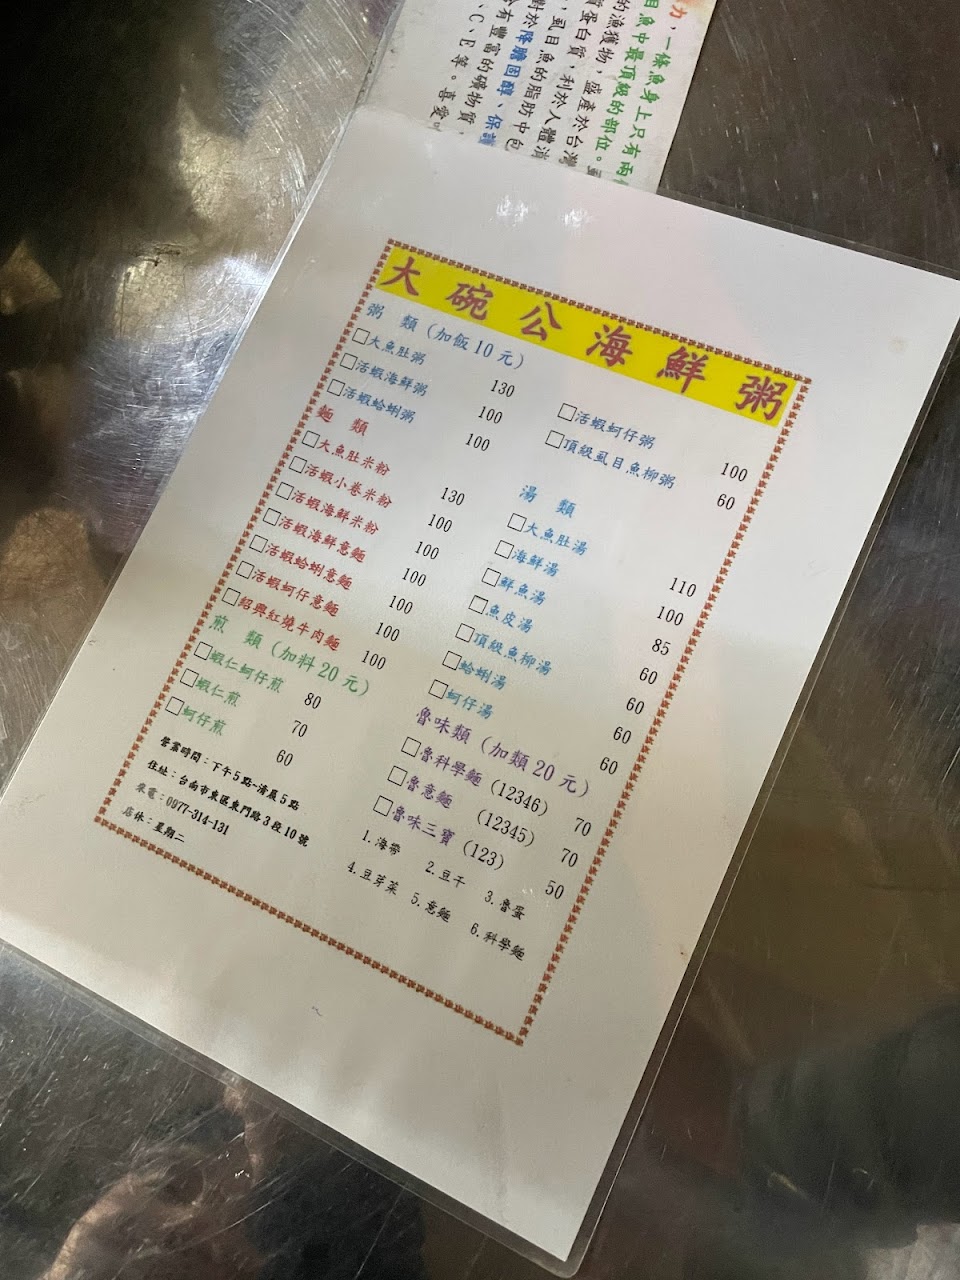 力，一條魚身上只有兩
目魚中最頂級的部位。
的漁獲物，盛產於台灣
質蛋白質，利於人體
，虱目魚的脂肪中包
對於降膽固醇、保
有豐富的礦物質，
、C、E等。喜愛
大碗公海鮮粥
粥 類（加飯10元）
□大魚肚粥 130
□活蝦海鮮粥 100
□活蝦蛤蜊粥 100
□活蝦蚵仔粥 100
□頂級虱目魚柳粥 60
麵 類
□大魚肚米粉 130
□活蝦小卷米粉 100
□活蝦海鮮米粉 100
□活蝦海鮮意麵 100
□活蝦蛤蜊意麵 100
□活蝦蚵仔意麵 100
□紹興紅燒牛肉麵 100
湯 類
□大魚肚湯 110
□海鮮湯 100
□鮮魚湯 85
□魚皮湯 60
□頂級魚柳湯 60
□蛤蜊湯 60
□蚵仔湯 60
煎 類（加料20元）
□蝦仁蚵仔煎 80
□蝦仁煎 70
□蚵仔煎 60
魯味類（加類20元）
□魯科學麵（12346） 70
□魯意麵（12345） 70
□魯味三寶（123） 50
1.海帶 2.豆干 3.魯蛋
4.豆芽菜 5.意麵 6.科學麵
營業時間：下午5點-清晨5點
住址：台南市東區東門路3段10號
來電：0977-314-131
店休：星期二